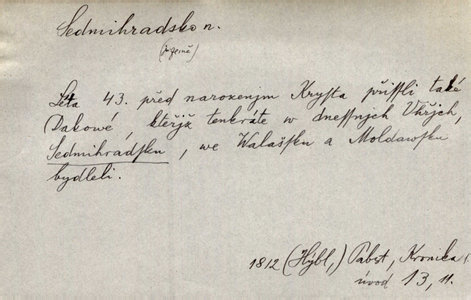 Sedmihradsko n.
(území)
Léta 43. před narozenjm Krysta přissli také
Dakowé, kteřjž tenkráte w dnessnjch Uhřjch,
Sedmihradsku, we Walašsku a Moldawsku
bydleli.
1812 (Hýbl,) Pabst, Kronika
úvod 13, 11.